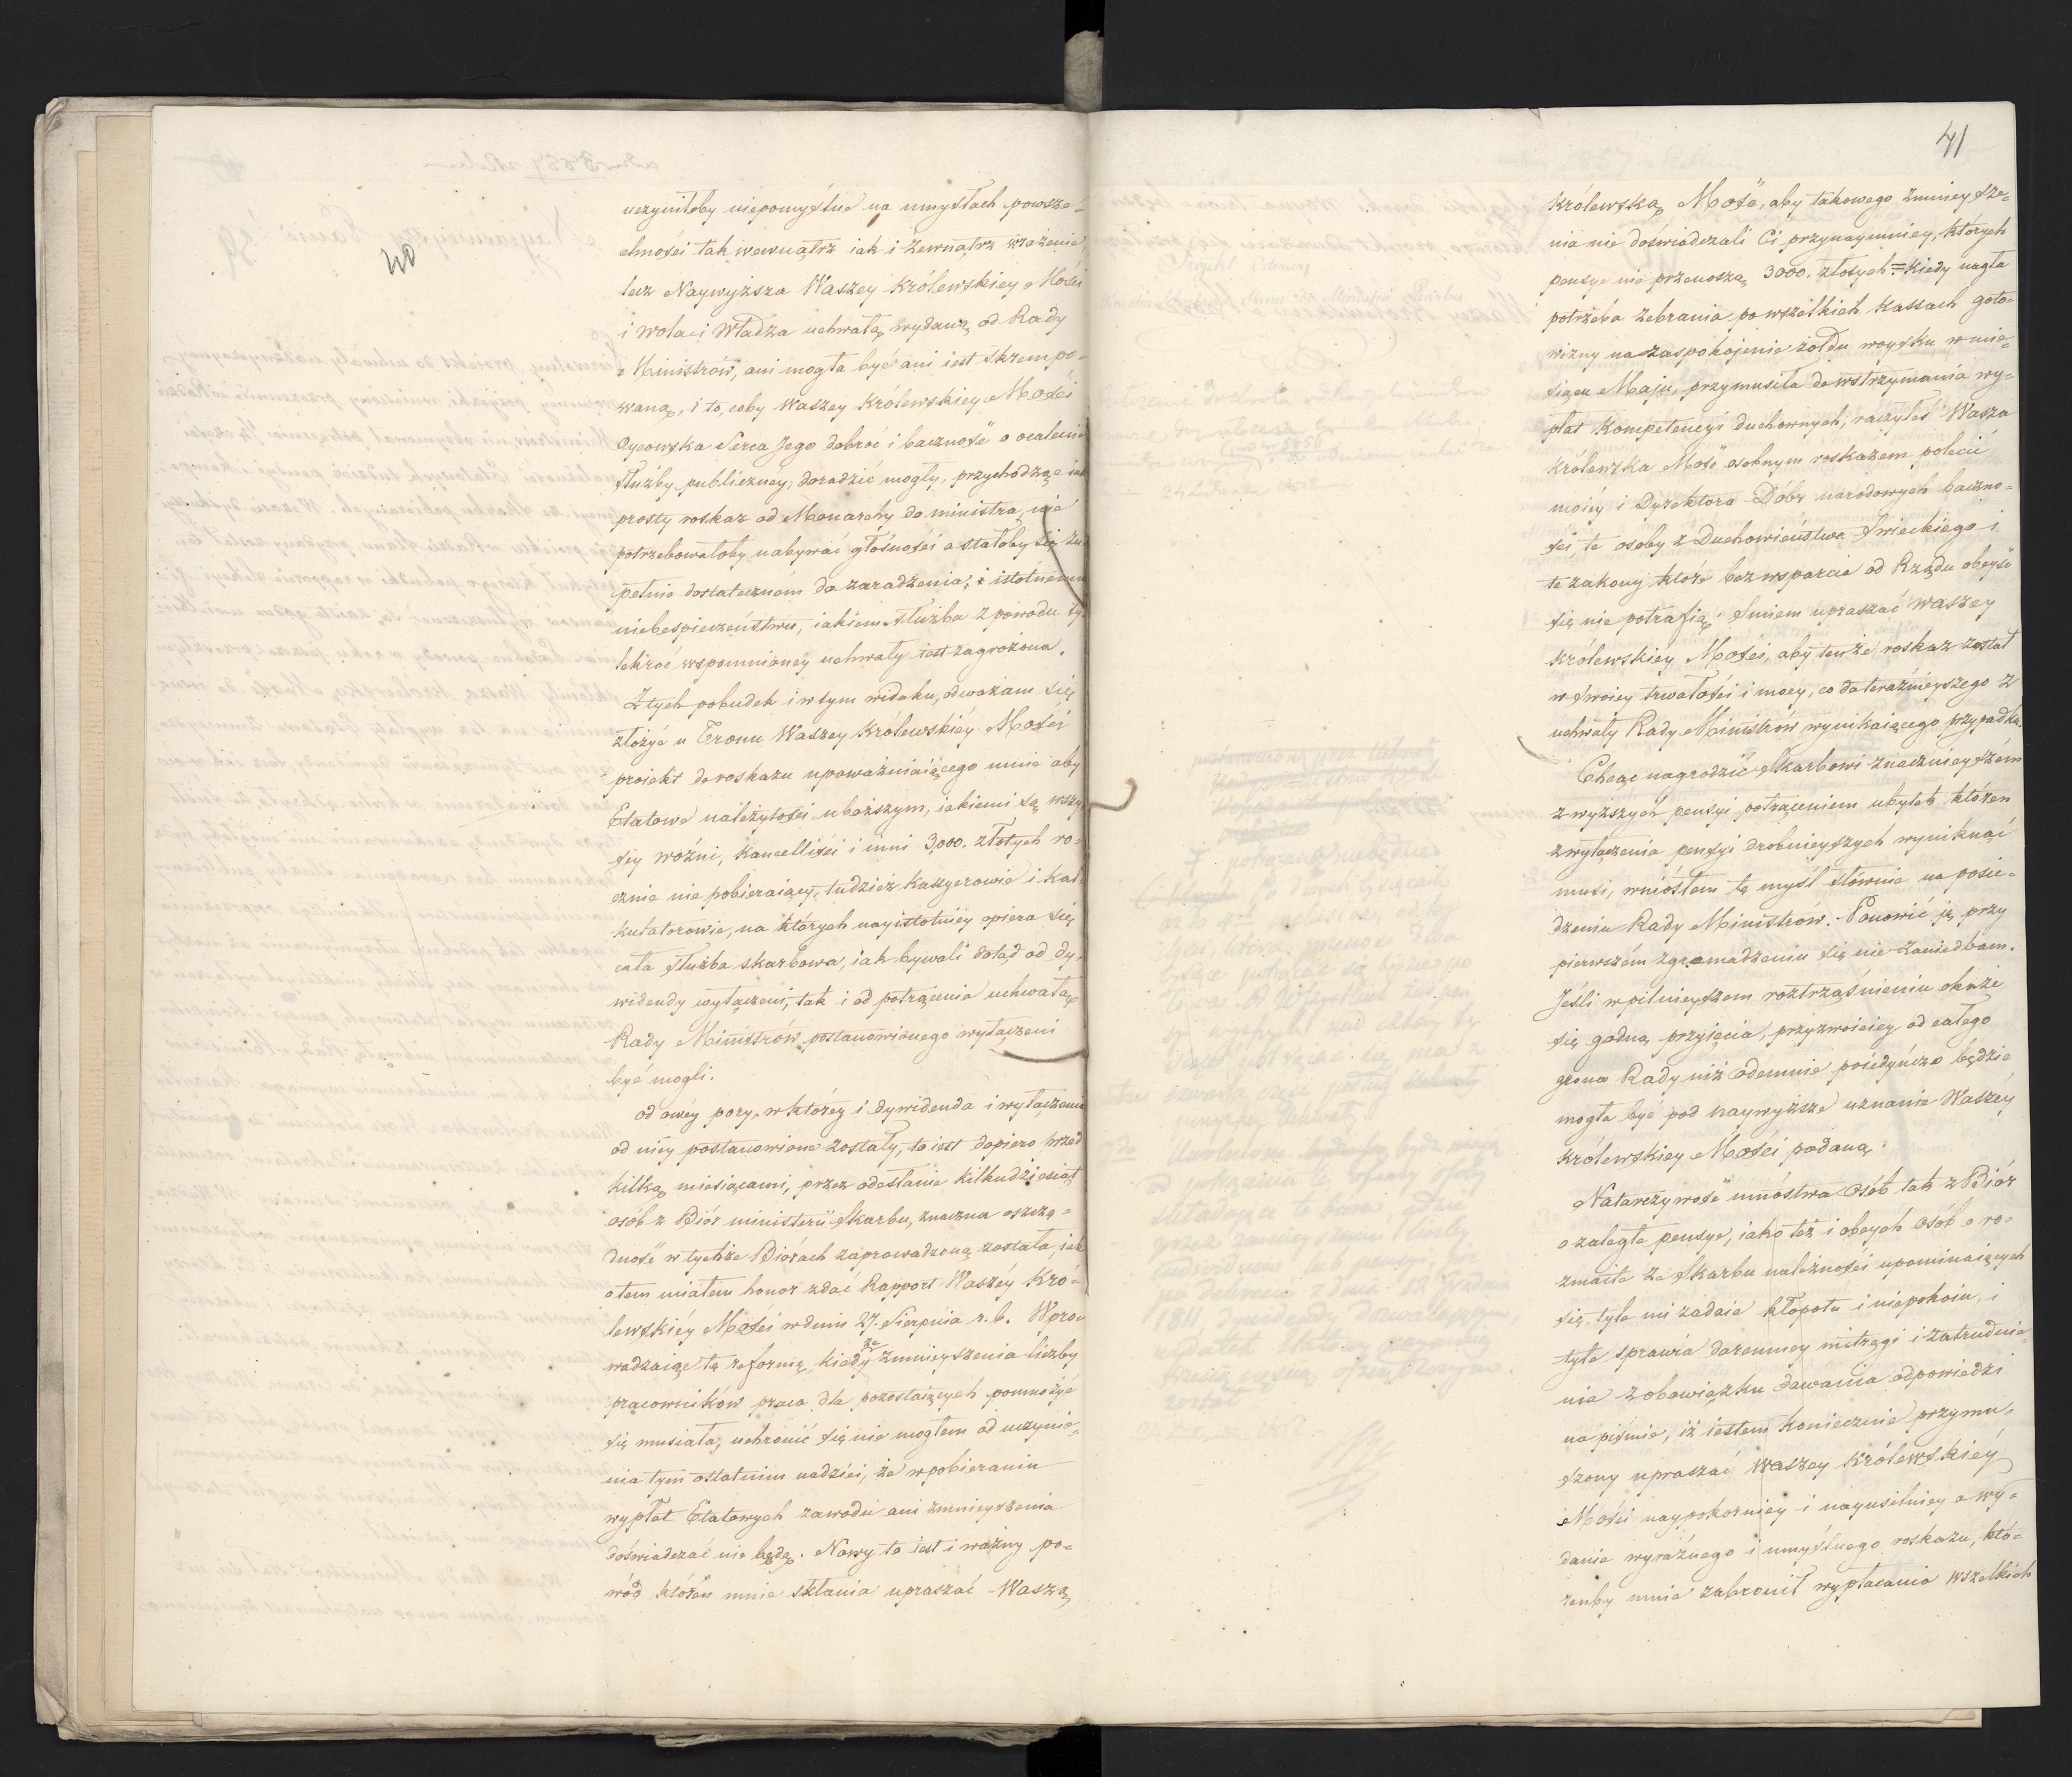 40
uczyniłoby niepomyślne na umysłach powsze-
chności tak wewnątrz iak i zewnątrz wrażenie,
lecz Naywyższa Waszey Królewskiey Mości
i wola i władza uchwałą wydaną od Rady
Ministrów, ani mogła być ani iest skrempo-
waną, i to, coby Waszey Królewskiey Mości
Oycowska Serca Jego dobroć i baczność o ocalenie
służby publiczney, doradzić mogły, przychodząc iak
prosty roskaz od Monarchy do ministra, nie
potrzebowałoby nabywać głośności a stałoby się zu-
pełnie dostatecznem do zaradzenia, i istotnemu
niebespieczeństwu, iakiem służba z powodu ty-
lekroć wspomnioney uchwały iest zagrożona.
Z tych pobudek i w tym widoku, odważam się
złożyć u Tronu Waszey Królewskiéy Mości
proiekt do roskazu upoważniaiącego mnie aby
Etatowe należytości uboższym, iakiemi są wszy-
scy woźni, Kancelliści i inni 3,000. złotych ro-
cznie nie pobieraiący, tudzież Kassyerowie i Kal-
kulatorowie, na których nayistotniey opiera się
cała służba skarbowa, iak bywali dotąd od dy-
widendy wyłączeni, tak i od potrącenia uchwałą
Rady Ministrów postanowionego wyłączeni
być mogli.
od owéy pory, w którey i dywidenda i wyłączenie
od niey postanowione zostały, to iest dopiero przed
kilką miesiącami, przez odesłanie kilkudziesiąt
osób z Biór ministerii Skarbu, znaczna oszczę-
dność w tychże Biórach zaprowadzoną została, iak
o tem miałem honor zdać Rapport Waszéy Kró-
lewskiéy Mości w dniu 27. Sierpnia r. b. Wpro-
wadzaiąc tę reformę, kiedy ze zmnieyszenia liczby
pracowników praca dla pozostaiących pomnożyć
się musiała, uchronić się nie mogłem od uczynie-
nia tym ostatnim nadziei, że w pobieraniu
wypłat Etatowych zawodu ani zmnieyszenia
doświadczać nie będą. Nowy to iest i ważny po-
wód któren mnie skłania upraszać Waszą
41
Królewską Mość, aby takowego zmnieysze-
nia nie doświadczali Ci przynaymniey, których
pensye nie przenoszą 3000. złotych = Kiedy nagła
potrzeba zebrania po wszelkich kassach goto-
wizny na zaspokojenie żołdu woysku w mie-
siącu Maju, przymusiła do wstrzymania wy-
płat Kompetencyi duchownych, raczyłeś Wasza
Królewska Mość osobnym roskazem polecić
moiéy i Dyrektora Dóbr narodowych baczno-
ści, te osoby z Duchowieństwa świeckiego i
te zakony które bez wsparcia od Rządu obeyść
się nie potrafią. Smiem upraszać Waszey
Królewskiéy Mości, aby tenże roskaz został
w swoiey trwałości i mocy, co do teraźnieyszego z
uchwały Rady Ministrów wynikaiącego przypadku.
Chcąc nagrodzić Skarbowi znacznieyszém
z wyższych pensyi potrąceniem ubytek któren
z wyłączenia pensyi drobnieyszych wyniknąć
musi, wniosłem tę myśl słownie na posie-
dzeniu Rady Ministrów. Ponowić ją przy
pierwszém zgromadzeniu się nie zaniedbam.
Jeśli w pilnieyszem roztrząśnieniu okaże
się godną przyięcia, przyzwoiciey od całego
grona Rady niż odemnie poiedyńczo będzie
mogła być pod naywyższe uznanie Waszéy
Królewskiey Mości podaną.
Natarczywość mnóstwa Osób tak z Biór
o zaległe pensye, iako też i obcych Osób o ro-
zmaite ze Skarbu należności upominaiących
się, tyle mi zadaie kłopotu i niepokoiu, i
tyle sprawia daremney mitręgi i zatrudnie-
nia z obowiązku dawania odpowiedzi
na piśmie, iż iestem koniecznie przymu-
szony upraszać Waszey Królewskiéy
Mości naypokorniey i nayusilniey o wy-
danie wyraźnego i umyślnego roskazu, któ-
renby mnie zabronił wypłacania wszelkich